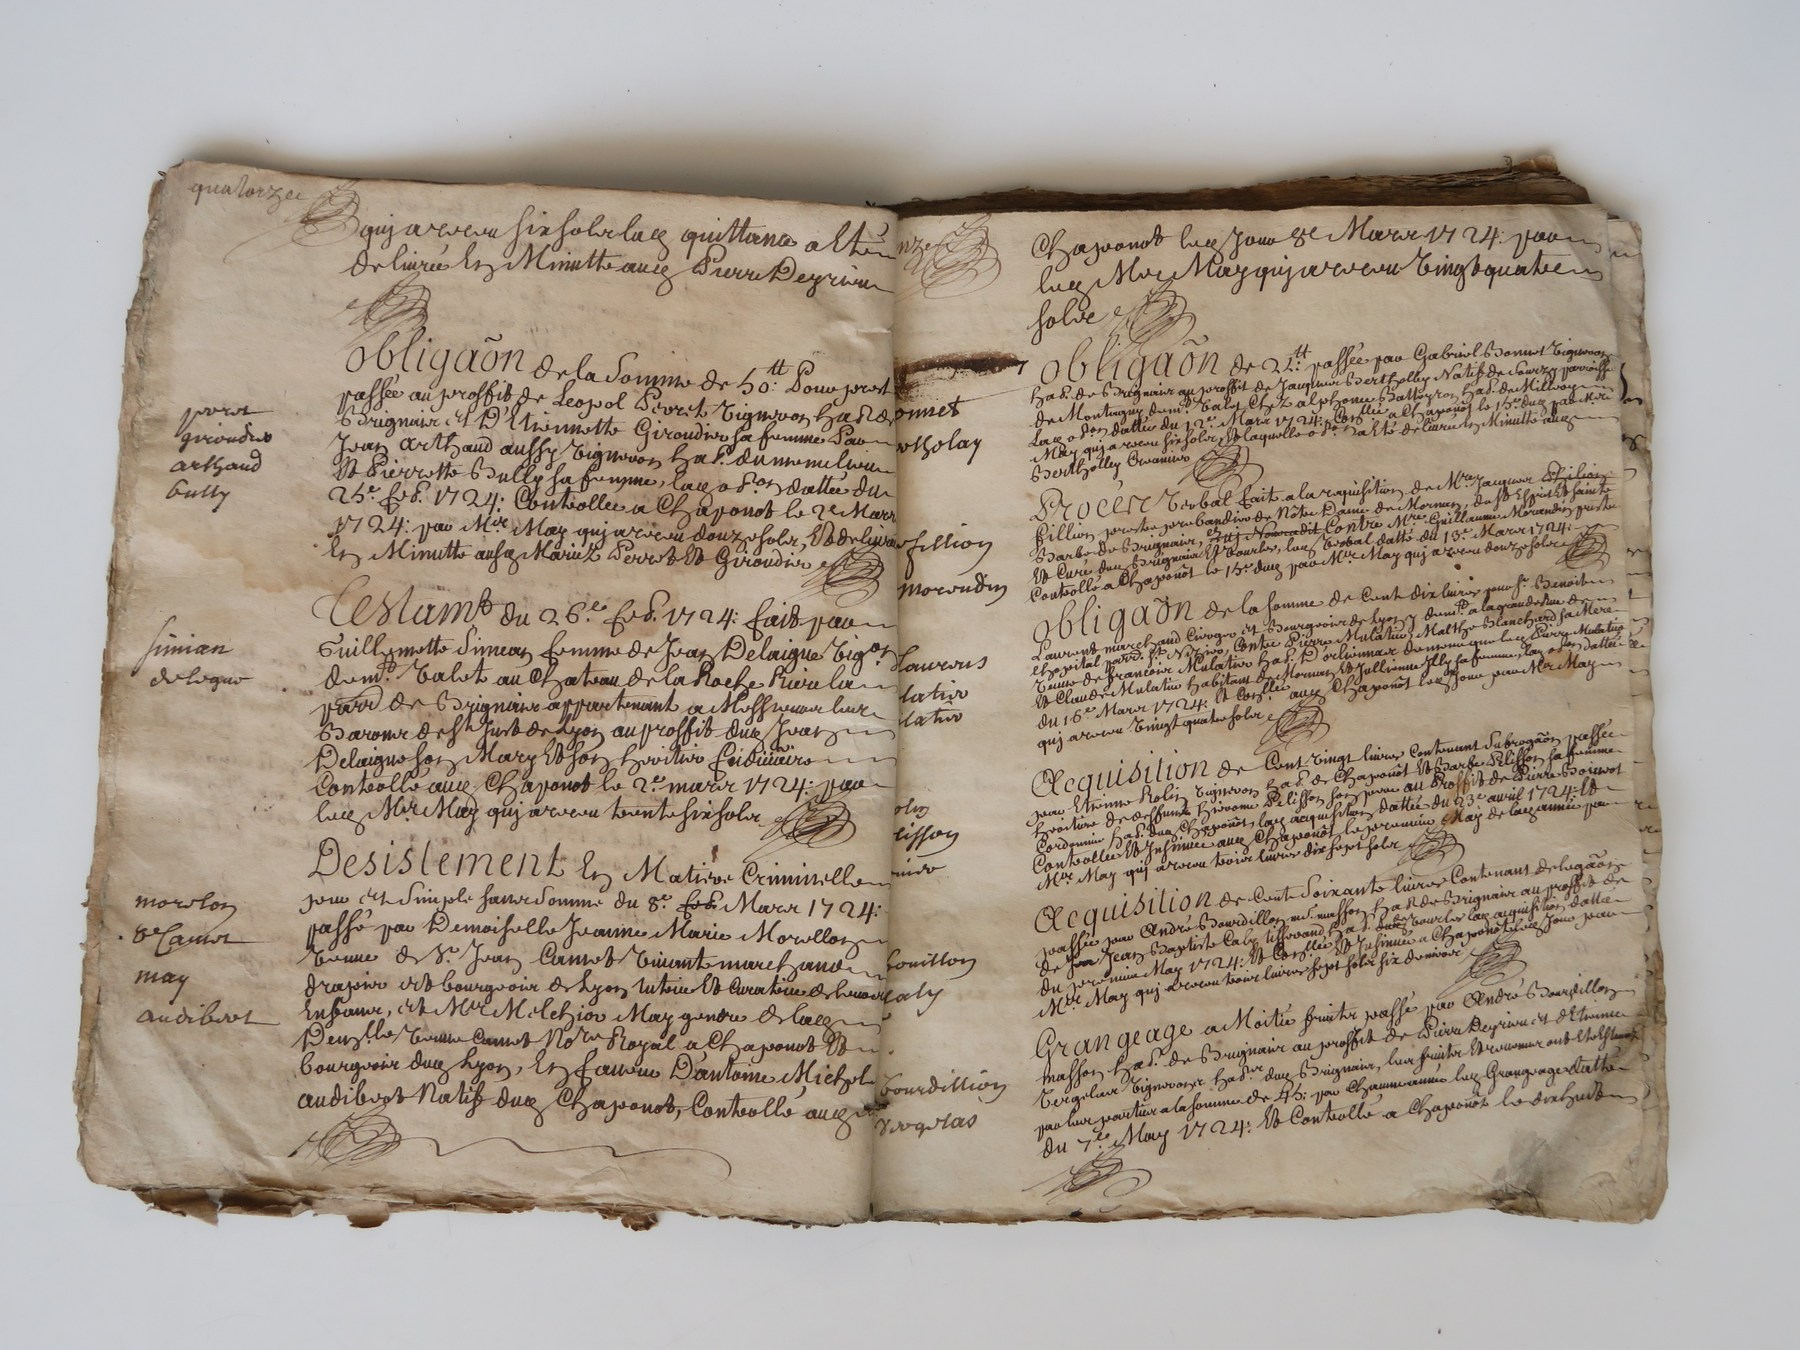 quatorze
quj a receu six sols laq quittance a Eté
delivrée En Minutte aud Pierre Deyrieu
obligaôn de la Somme de 50.tt Pour prest
passée au proffit de Leopol Perret Vigneron hab. de
Brignais et D'Etiennette Giroudier sa femme Par
Jean Arthaud aussy Vigneron hab. du mesme lieu
Et Pierrette Bully sa femme, laq ob.on dattée du
25e feb. 1724: Controllée a Chaponot le 2e Mars
1724: par Mr May quj a receu douze sols, Et delivrée
En Minutte ausd Mariez Perret Et Giroudier
perret
giroudier
arthaud
bully
Testamt du 26e feb. 1724: fait par
Guillemette Simean femme de Jean Delaigue Vigon
demt Valet au Chateau de la Roche Riere la
parr de Brignais appartenant a Messieurs les
Barons de St Just de Lyon au proffit dud Jean
Delaigue son Mary Et son heritier fiduciaire
Controllé aud Chaponot le 2e mars 1724: par
led Mr May quj a receu trente six sols
simian
delegue
Desistement En Matiere Criminelle
pur et Simple sans Somme du 8e feb Mars 1724:
passé par Demoiselle Jeanne Marie Morellon
Veuve de Sr Jean Camot Vivant marchand
drapier et bourgeois de Lyon tutrice Et Curatrice de leurs
Enfans, et Mr Melchior May gendre de lad
Demlle Veuve Camot Nore Royal a Chaponot Et
bourgeois dud Lyon, En faveur D'antoine Michel
audibert Natif dud Chaponot, Controllé aud
morelon
ve Camot
may
audibert
Chaponot led Jour 8e Mars 1724: par
led Mr May quj a receu Vingt quatre
sols
obligaôn de 22.tt passée par Gabriel Bonnet Vigneron
hab. de Brignais au proffit de Jacques Bertholley Natif de Sourzy parroisse
de Montagny demt Valet Chez alphonse hab. de Millery
laq ob.on dattée du 12e Mars 1724: Conllée a Chaponot le 15e dud par Mr
May quj a receu six sols, Et laquelle ob.on a Eté delivrée En Minutte aud
Bertholley Creancier
onnet
rtholay
Procés Verbal fait a la requisition de Mre Jacques
fillion prestre prebandier de Nôtre Dame de Mornan, du St Esprit Et Sainte
Barbe de Brignais, Contre Mre Guillaume Morandin prestre
Et Curé dud Brignais Et Vourles, led Verbal datté du 13e Mars 1724:
Controllé a Chaponôt le 15e dud par Mr May quj a receu douze sols
fillion
morendin
obligaôn de la somme de Cent dix livres pour Sr Benoit
Laurent marchand Cirogier et Bourgeois de Lyon y demt a la grande Rue de
lhopital parr. St Nizier, Contre Pierre Mulatier, Malthe Blanchard sa Mere
Veuve de francois Mulatier hab. D'orliennas
Et Claude Mulatier habitant de Mornan, Et Jullienne sa femme, laq ob.on dattée
du 16e Mars 1724: Et Conllée aud Chaponot led Jour par Mr May
quj a receu Vingt quatre sols
laurens
latier
latier
Acquisition de Cent Vingt livres Contenant Subrogaôn passée
par Etienne Rolin Vigneron hab. de Chaponôt Et Barbe Pelisson sa femme
heritiere de deffunt hierome Pelisson son pere au Proffit de Pierre
Cordonnier hab. dud Chaponôt, laq acquisition dattée du 23e avril 1724: Et
Controllée Et Insinuée aud Chaponôt le premier May de lad année par
Mr May quj a receu trois livres dix sept sols
olin
lisson
Acquisition de Cent Soixante livres Contenant delegaôn
passée par André Bourdillon me masson hab. de Brignais au proffit de
Jean Baptiste Caly tisserand hab. de Vourles laq acquisition dattée
du premier May 1724: Et Conllée Et Insinuée a Chaponôt led Jour par
Mr May quj a receu trois livres sept sols six deniers
caly
Grangeage a Moitié fruits passé par André Bourdillon
masson hab. de Brignais au proffit de Pierre Deyrieu et d'Etienne
Vergelas Vignerons hab. dud Brignais, les fruits Et revenus ont Eté Estimés
par les parties a la somme de 45: par Chacune année led Grangeage datté
du 7e May 1724: Et Controllé a Chaponôt le dix huit
bourdillion
vergelas